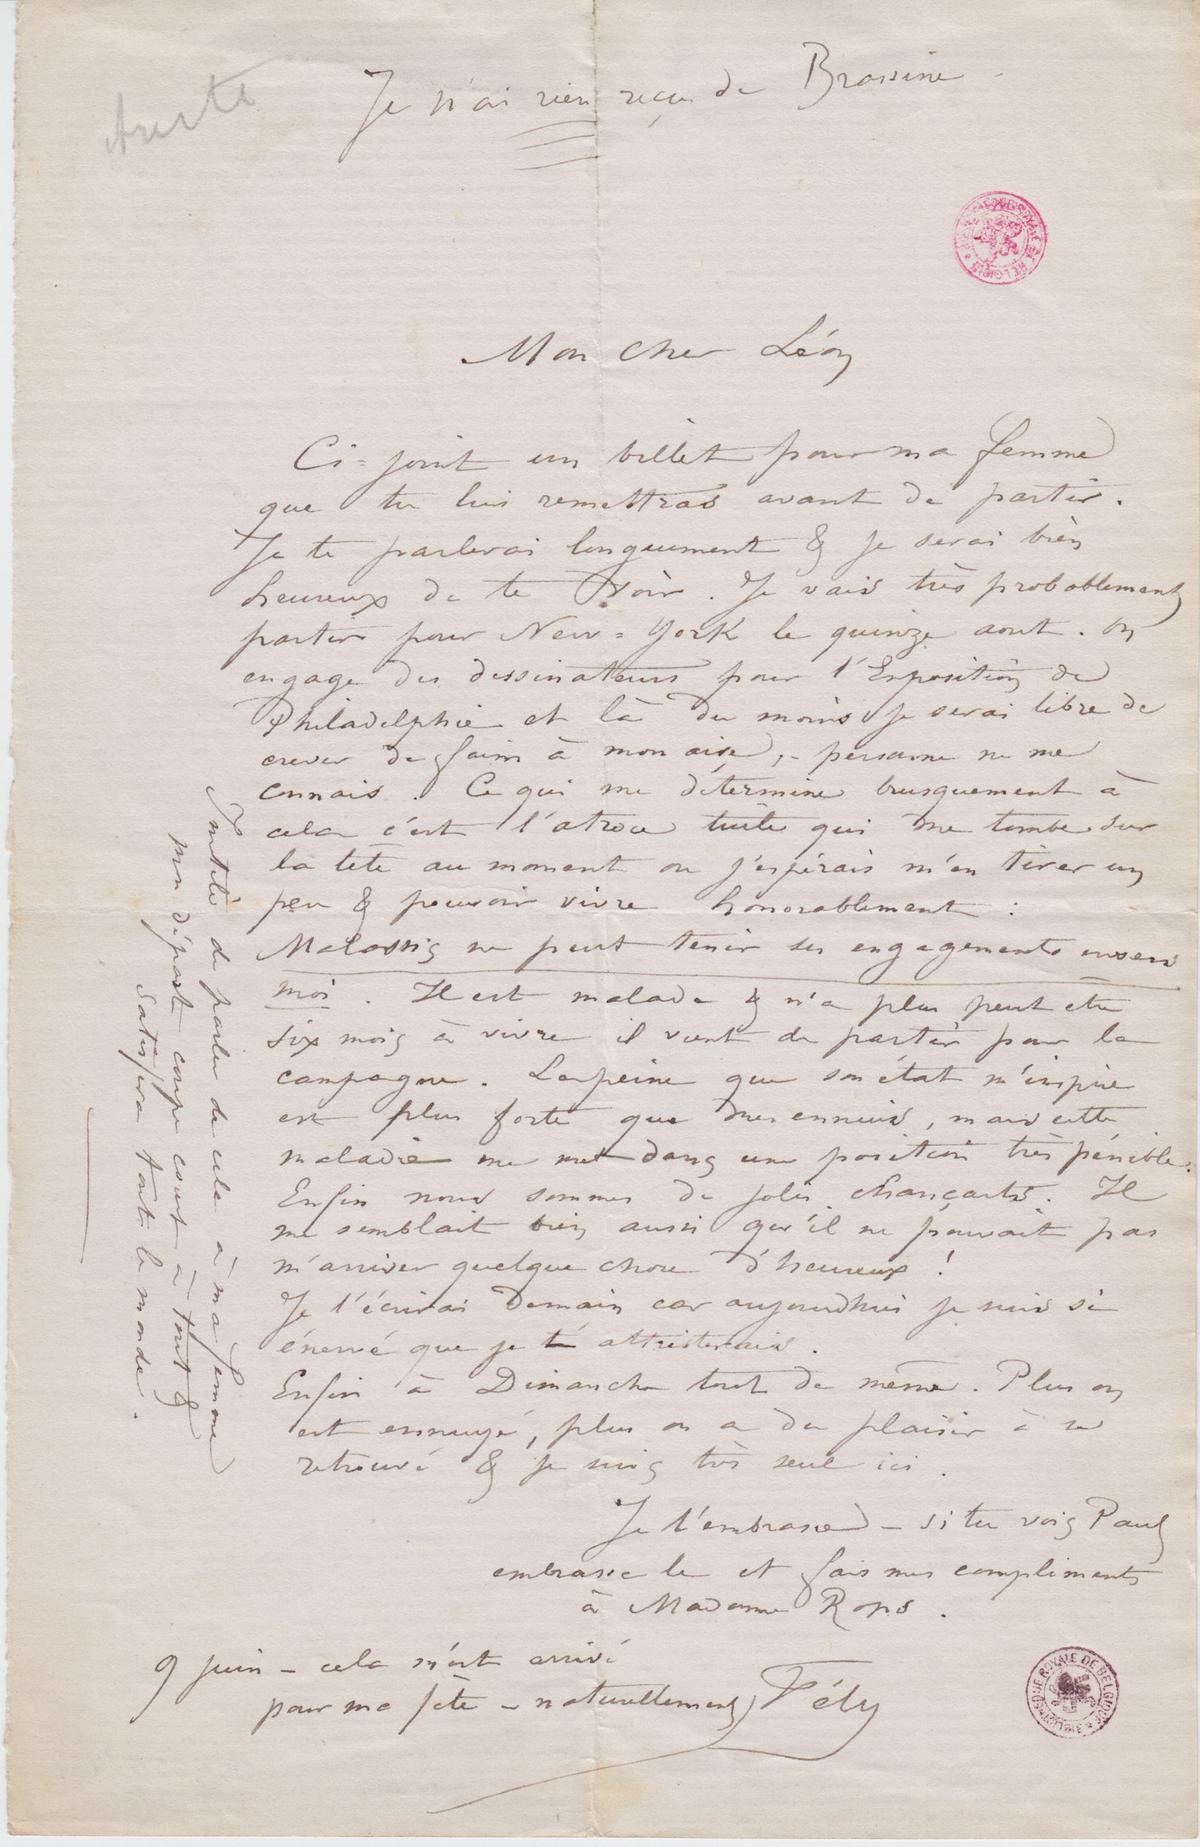 Je n'ai rien reçu de Brassine
Mon cher Léon
Ci-joint un billet pour ma femme
que tu lui remettras avant de partir.
Je te parlerai longuement & je serai bien
heureux de te voir. Je vais très probablement
partir pour New-York le quinze aout. on
engage des dessinateurs pour l'Exposition de
Philadelphie et là du moins je serai libre de
crever de faim à mon aise, - personne ne me
connais. Ce qui me détermine brusquement à
cela c'est l'atroce tuile qui me tombe sur
la tête au moment ou j'espérais m'en tirer un
peu & pouvoir vivre honorablement :
Malassis ne peut tenir ses engagements envers
moi. Il est malade & n'a plus peut etre
six mois à vivre il vient de partir pour la
campagne. La peine que son état m'inspire
est plus forte que mes ennuis, mais cette
maladie me met dans une position très pénible.
Enfin nous sommes de jolis chançards. Il
me semblait bien aussi qu'il ne pouvait pas
m'arriver quelque chose d'heureux !
Je t'écrirai demain car aujourdhui je suis si
énervé que je t'attristerais.
Enfin à Dimanche tout de même. Plus on
est ennuyé, plus on a du plaisir à se
retrouvé & je suis très seul ici.
Je t'embrasse - si tu vois Paul
embrasse le et fais mes compliments
à Madame Rops.
9 juin - cela m'est arrivé
pour ma fête - naturellement Fély
Inutile de parler de cela à ma femme
mon départ coupe court à tout &
satisfera tout le monde.
BIBLIOTHEQUE ROYALE DE BELGIQUE